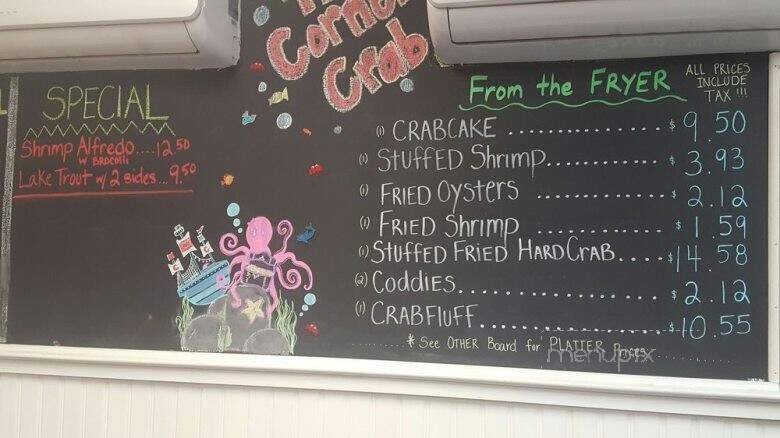 Corner
Crab
SPECIAL
Shrimp Alfredo.....12.50
W BROCOlli
Lake Trout w/ 2 sides...9.50
From the FRYER
ALL PRICES
INCLUDE
TAX !!!
(1) CRABCAKE .................. $ 9.50
(1) STUFFED Shrimp.............. $ 3.93
(1) FRIED OYSTERS ................ $ 2.12
(1) FRIED Shrimp ................. $ 1.59
(1) STUFFED FRIED HARD CRAB.... $14.58
(2) Coddies....................... $ 2.12
(1) CRABFLUFF..................... $10.55
* See OTHER Board for PLATTER Prices
menupix